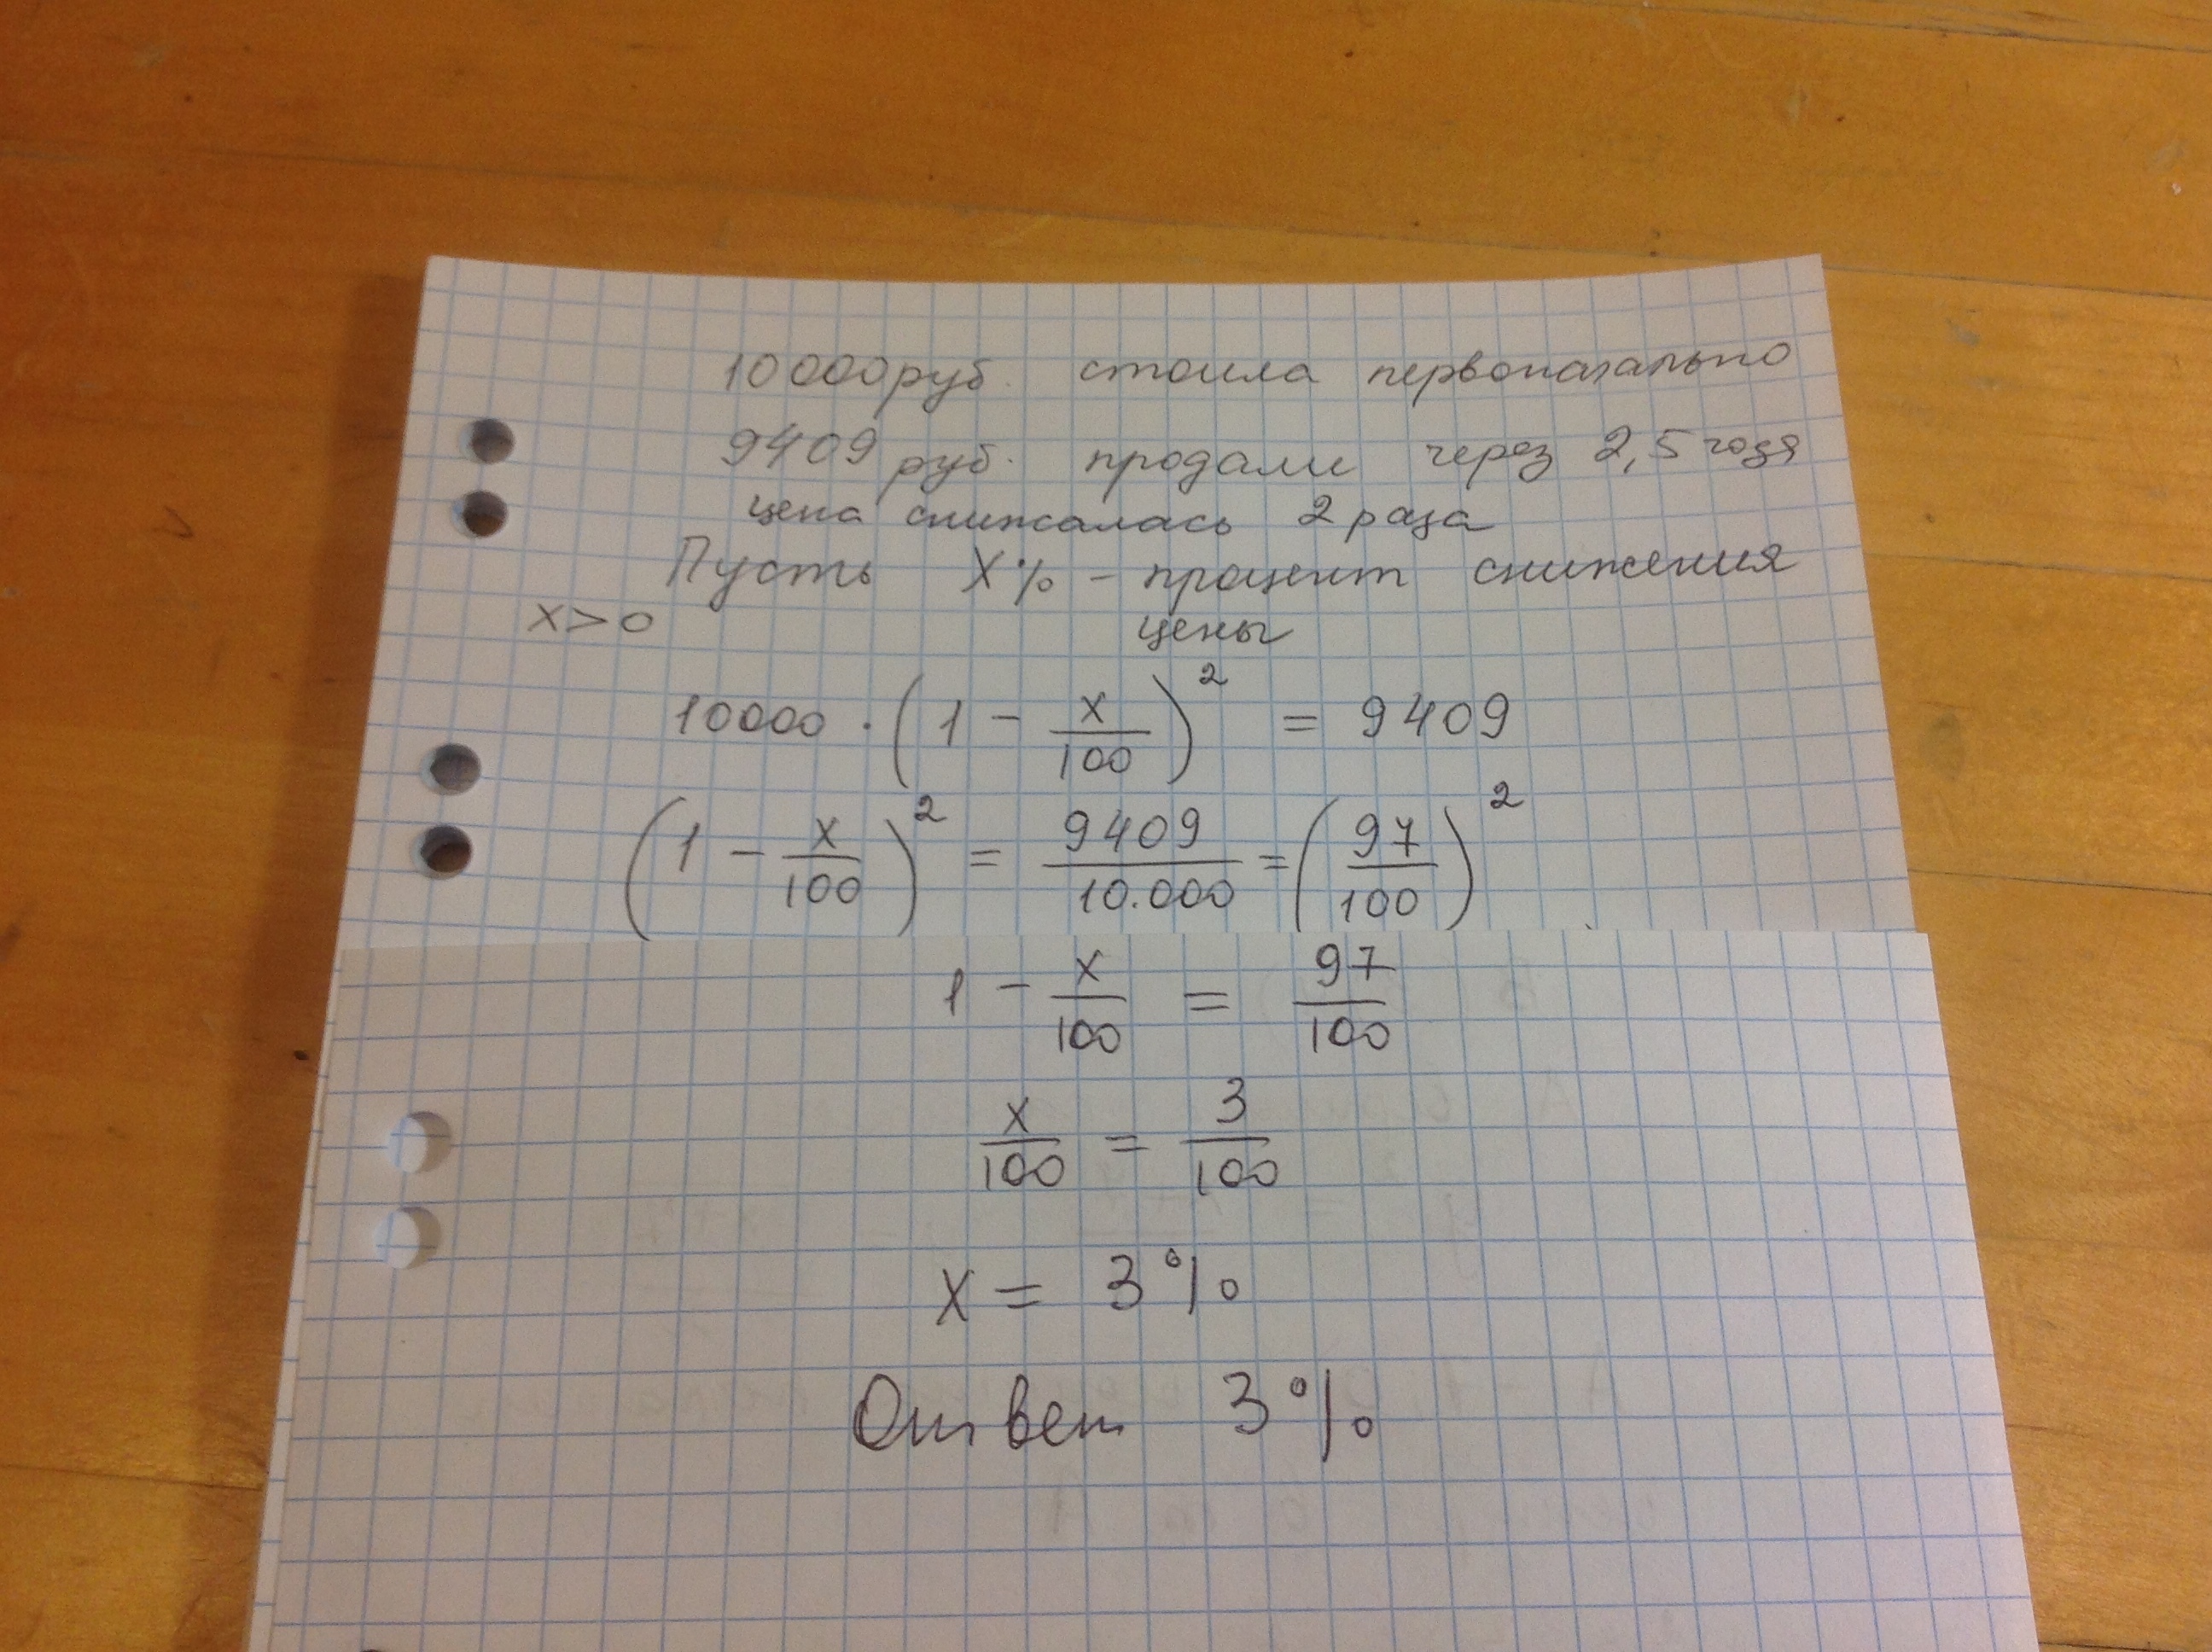 10000 руб. стоила первоначально
9409 руб. продали через 2,5 года
цена снижалась 2 раза
Пусть X% - процент снижения
x>0 цены
10000 · (1 - x/100)² = 9409
(1 - x/100)² = 9409/10.000 = (97/100)²
1 - x/100 = 97/100
x/100 = 3/100
x = 3%
Ответ 3%